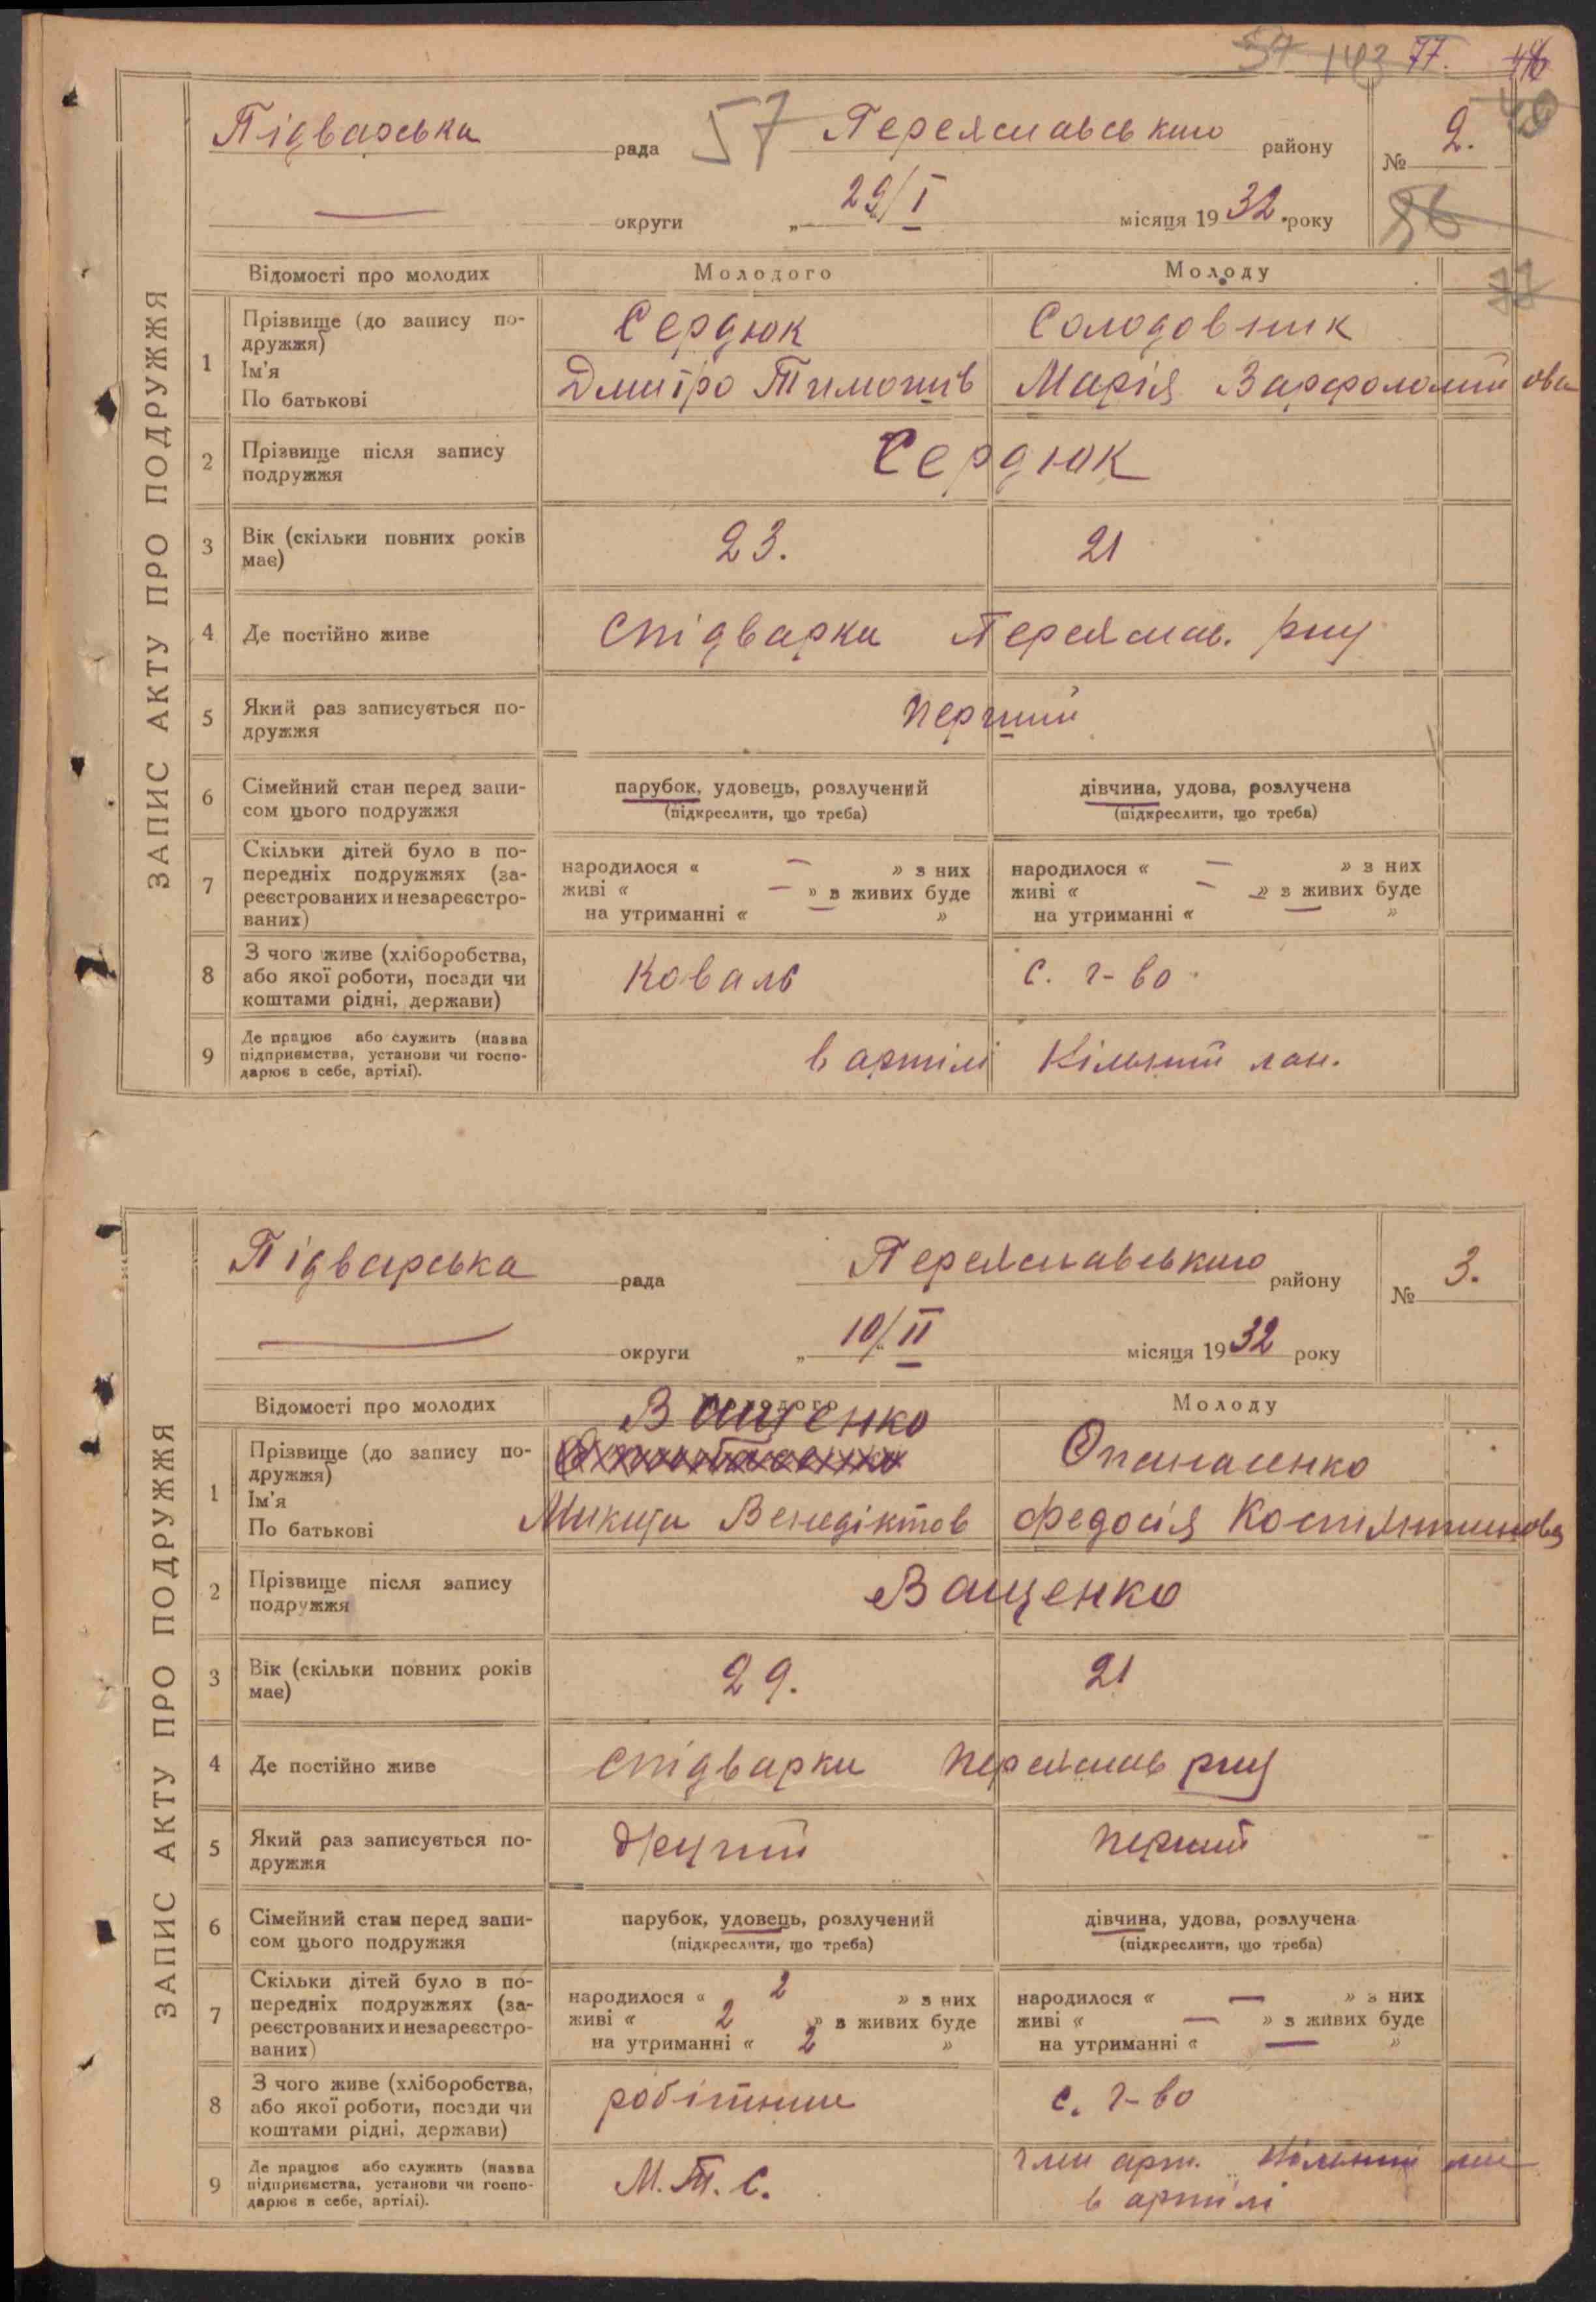 57 143 77. 46
49
Підварська рада 57 Переяславського району № 2.
округи „ 29/I місяця 1932 року
56
77
ЗАПИС АКТУ ПРО ПОДРУЖЖЯ
Відомості про молодих Молодого Молоду
1 Прізвище (до запису подружжя) Сердюк Солодовник
Ім'я
По батькові Дмитро Тимошів Марія Варфоломійова
2 Прізвище після запису подружжя Сердюк
3 Вік (скільки повних років має) 23. 21
4 Де постійно живе Спідварки Переяслав. р-ну
5 Який раз записується подружжя перший
6 Сімейний стан перед записом цього подружжя парубок, удовець, розлучений (підкреслити, що треба) дівчина, удова, розлучена (підкреслити, що треба)
7 Скільки дітей було в попередніх подружжях (зареєстрованих и незареєстрованих) народилося « — » з них живі « — » з живих буде на утриманні « — » народилося « — » з них живі « — » з живих буде на утриманні « — »
8 З чого живе (хліборобства, або якої роботи, посади чи коштами рідні, держави) Коваль с. г-во
9 Де працює або служить (назва підприємства, установи чи господарює в себе, артілі). в артілі Вільний лан.
Підварська рада Переяславського району № 3.
округи „ 10/II місяця 1932 року
ЗАПИС АКТУ ПРО ПОДРУЖЖЯ
Відомості про молодих Молодого Молоду
1 Прізвище (до запису подружжя) Ващенко Опанасенко
Ім'я
По батькові Микита Венедіктов Федосія Костянтинова
2 Прізвище після запису подружжя Ващенко
3 Вік (скільки повних років має) 29. 21
4 Де постійно живе Спідварки Переяслав р-ну
5 Який раз записується подружжя другий перший
6 Сімейний стан перед записом цього подружжя парубок, удовець, розлучений (підкреслити, що треба) дівчина, удова, розлучена (підкреслити, що треба)
7 Скільки дітей було в попередніх подружжях (зареєстрованих и незареєстрованих) народилося « 2 » з них живі « 2 » з живих буде на утриманні « 2 » народилося « — » з них живі « — » з живих буде на утриманні « — »
8 З чого живе (хліборобства, або якої роботи, посади чи коштами рідні, держави) робітник с. г-во
9 Де працює або служить (назва підприємства, установи чи господарює в себе, артілі). М.Т.С. член арт. Вільний лан
в артілі